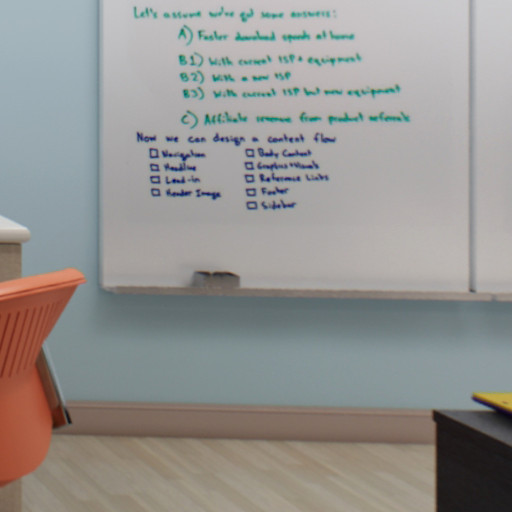 Let's assume we've got some answers:
A) Faster download speeds at home
B1) With current ISP + equipment
B2) With a new ISP
B3) With current ISP but new equipment
C) Affiliate revenue from product referrals
Now we can design a content flow
Navigation
Headline
Lead-in
Header Image
Body Content
Graphics + Visuals
Reference Links
Footer
Sidebar